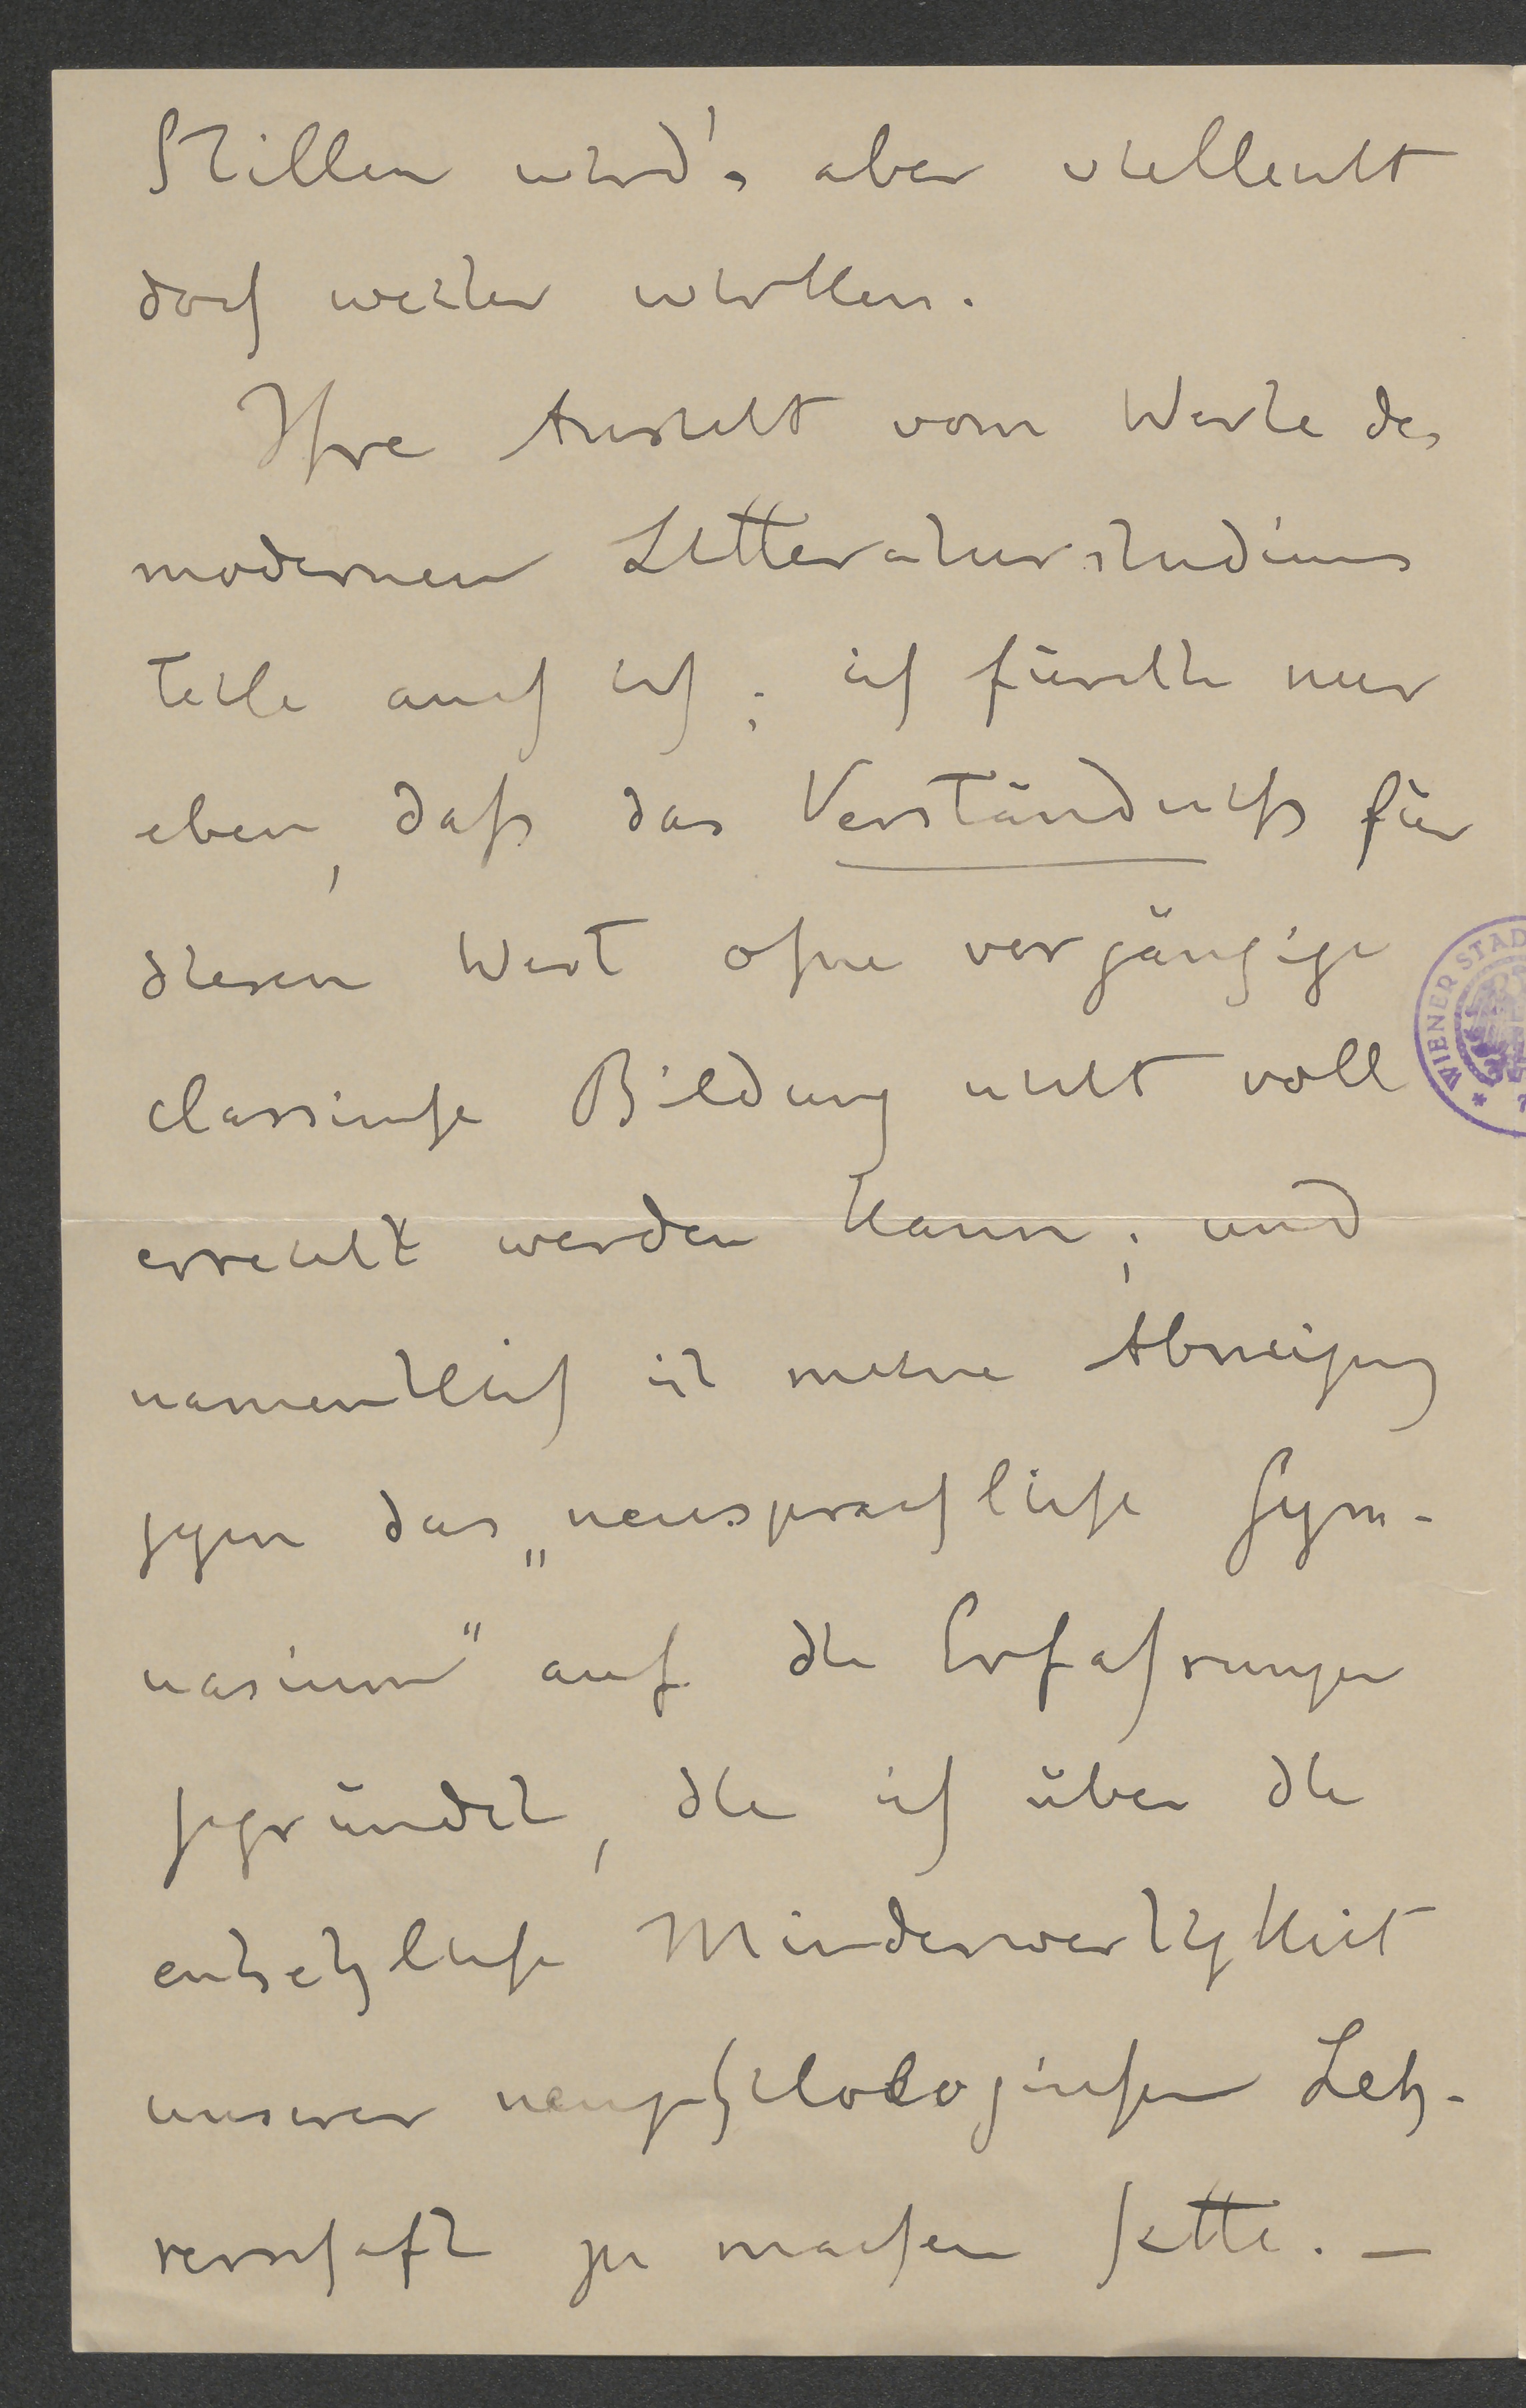 Stillen wird's aber vielleicht
doch weiter wirken.
Ihre Ansicht vom Werte des
modernen Litteraturstudiums
teile auch ich; ich fürchte nur
eben, daß das Verständniß für
diesen Wert ohne vorgängige
classische Bildung nicht voll
erreicht werden kann; und
namentlich ist meine Abneigung
gegen das „neusprachliche Gym-
nasium“ auf die Erfahrungen
gegründet, die ich über die
entsetzliche Minderwertigkeit
unserer neuphilologischen Leh-
rerschaft zu machen hatte. —
WIENER STAD